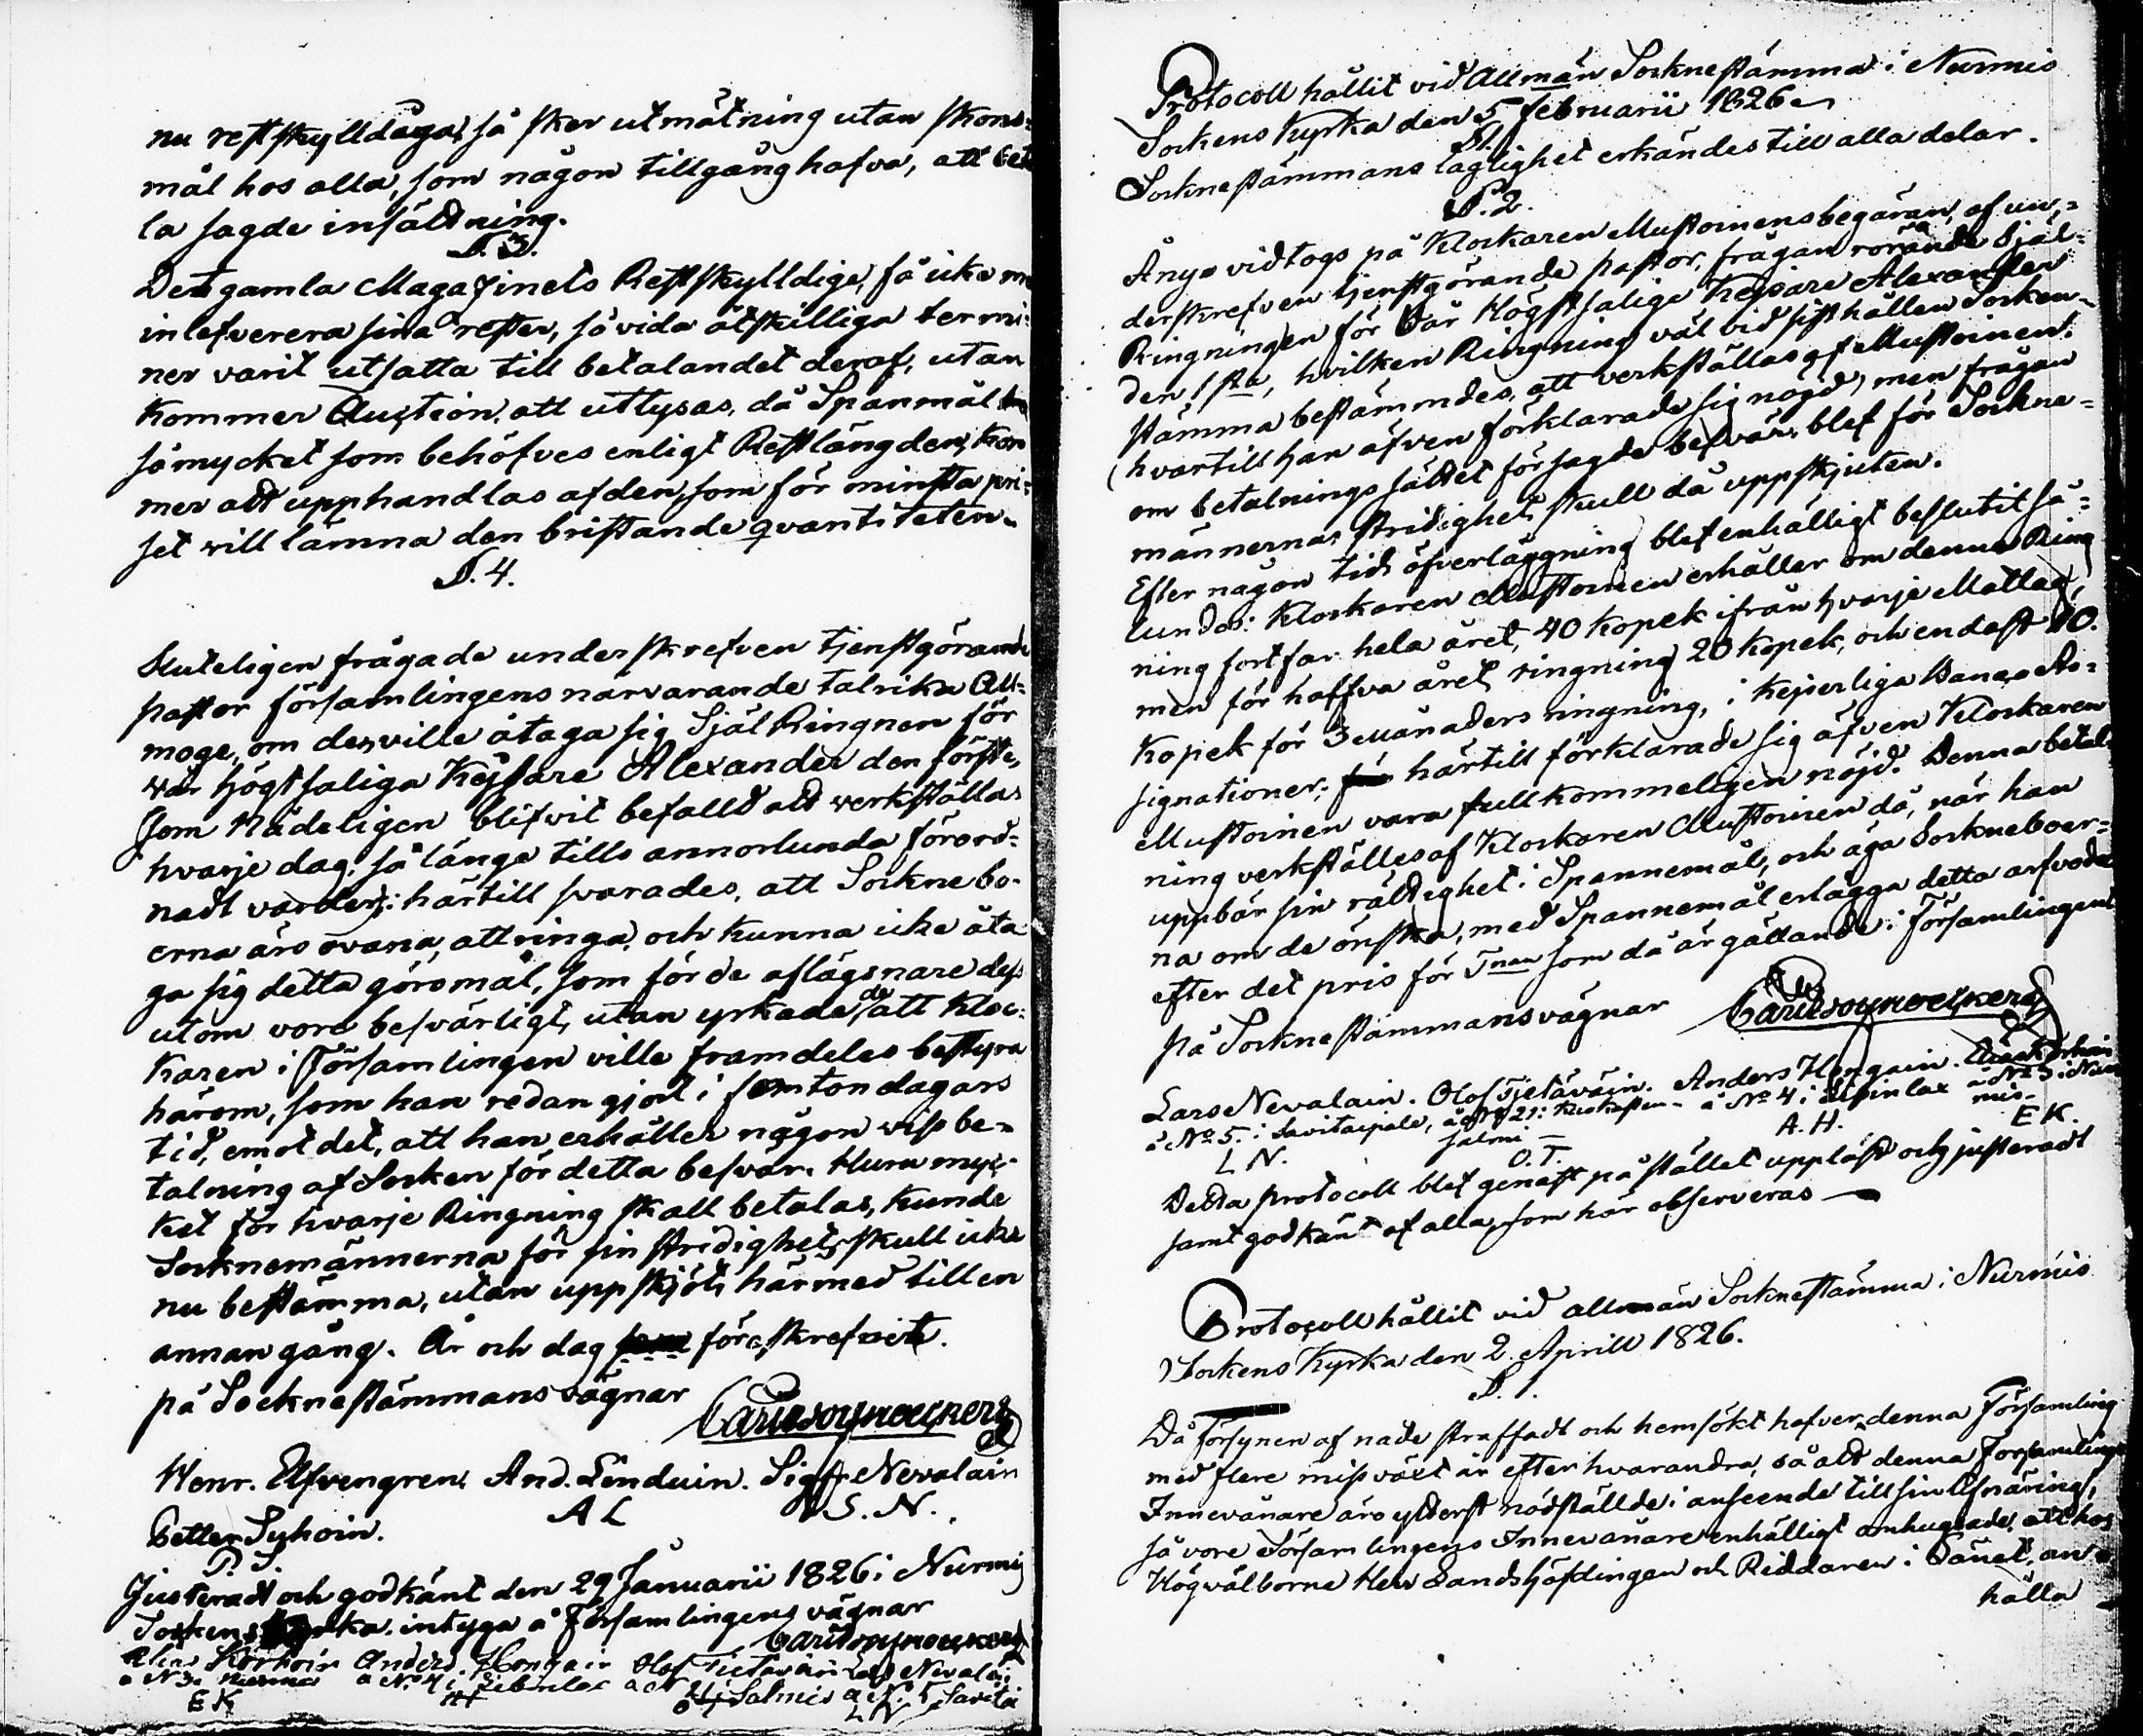 nu restskylldåga, så sker utmätning utan skons-
mål hos alla, som någon tillgång hafva, att beta
la sagde insättning.
§. 3.
Det gamla Magazinets Restskylldige, få icke me
inlefverera sina rester, så vida åtskilliga termi-
ner varit utsatta till betalandet deraf, utan
kommer Auction att utlysas, då Spanmål
så mycket som behöfves enligt Restlängden, kom
mer att upphandlas af den, som för minsta pri-
set will lämna den bristande qvantiteten.
§. 4.
Sluteligen frågade underskrefven tjenstgörande
pastor församlingens närvarande talrika All-
moge, om des ville åtaga sig Själ Ringnen för
vår högstsaliga Kejsare Alexander den förste,
som Nådeligen blifvit befalld att verkställas
hvarje dag, så länge tills annorlunda förord-
nadt varder; härtill svarades, att Sockne bo-
erna äro ovana, att ringa, och kunna icke åta
ga sig detta göromål, som för de aflägsnare dess
utom vore besvärligt, utan yrkade de att Kloc-
karen i Församlingen ville framdeles bestyra
härom, som han redan gjort i femton dagars
tid, emot det, att han erhåller någon viss be-
talning af Socken för detta besvär. Huru myc-
ket för hvarje Ringning skall betalas, kunde
Socknemännerna för sin stridighets skull icke
nu bestämma, utan uppskjöts härmed till en
annan gång. År och dag föreskrefvit.
på Socknestämmans vägnar
Carl von Nouckers
Henr. Elfvengren. And. Linduin. Sigfr. Nevalain
A L S. N.
Petter Syhoin.
P. S.
Justeradt och godkänt den 29 Januarii 1826 i Nurmis
Sockens Kyrka, intyga å Församlingens vägnar
Elias Korhoin Anders Hongain Olof Tietäväin Lars Nevalain
a N 3. Nurmes a No. 4 i a N 21 i Salmis a N. 5 Savitai
E K AH LN
Protocoll hållit vid Allmän Socknestämma i Nurmis
Sockens Kyrka den 5 Februarii 1826
§. 1.
Socknestämmans laglighet erkändes till alla delar.
§. 2.
Ånyo vidtogs på Klockaren Mustoinens begäran, af un-
derskrefven tjenstgörande pastor, frågan rörande Själ-
Ringningen för Vår Högstsalige Kejsare Alexander
den 1sta, hvilken Ringning väl vid sisthållen Socken-
stämma bestämmdes, att verkställas af Mustoinen,
(hvartill han äfven förklarade sig nöjd) men frågan
om betalningssättet för sagde besvär, blef för Sockne-
männernas stridighets skull då uppskjuten.
Efter någon tids öfverläggning blef enhälligt beslutit så-
lunda: Klockaren Mustoinen erhåller om denna Ring
ning fortfar hela året, 40 kopek ifrån hvarje Matlag,
men för halfva årets ringning 20 kopek, och endast 10.
kopek för 3 månaders ringning, i Kejserliga Banco As-
signationer; härtill förklarade sig äfven Klockaren
Mustoinen vara fullkommeligen nöjd. Denna betal-
ning verkställes af Klockaren Mustoinen då, när han
uppbär sin rättighet i Spannemål, och äga Sockneboer-
na om de önska, med Spannemål erlägga detta arfvode
efter det pris för Tnan som då är gällande i Församlingen.
på Socknestämmans vägnar Carl von Nouckers
Lars Nevalain. Olof Tjetäväin. Anders Hongain. Elias Korhoin
å No 5. i Savitaipale, å No 21: å No 4 i Lipinlax å No 3. i Nur
salmi mis
L N. O. T. A. H. E K.
Detta protocoll blef genast på stället uppläst och justeradt
samt godkänt af alla, som här observeras
Protocoll hållit vid allmän Socknestämma i Nurmis
Sockens Kyrka den 2 Aprill 1826.
§. 1.
Då Försynen af nåde straffadt och hemsökt hafver denna Församling
med flere missväxt år efter hvarandra, så att denna Församlings
Innevånare äro ytterst nödställde i anseende till sin Afnäring,
så vore Församlingens Innevånare enhälligt omhugsade, att hos
Högvälborne Herr Landshöfdingen och Riddaren i Länet, an-
hålla